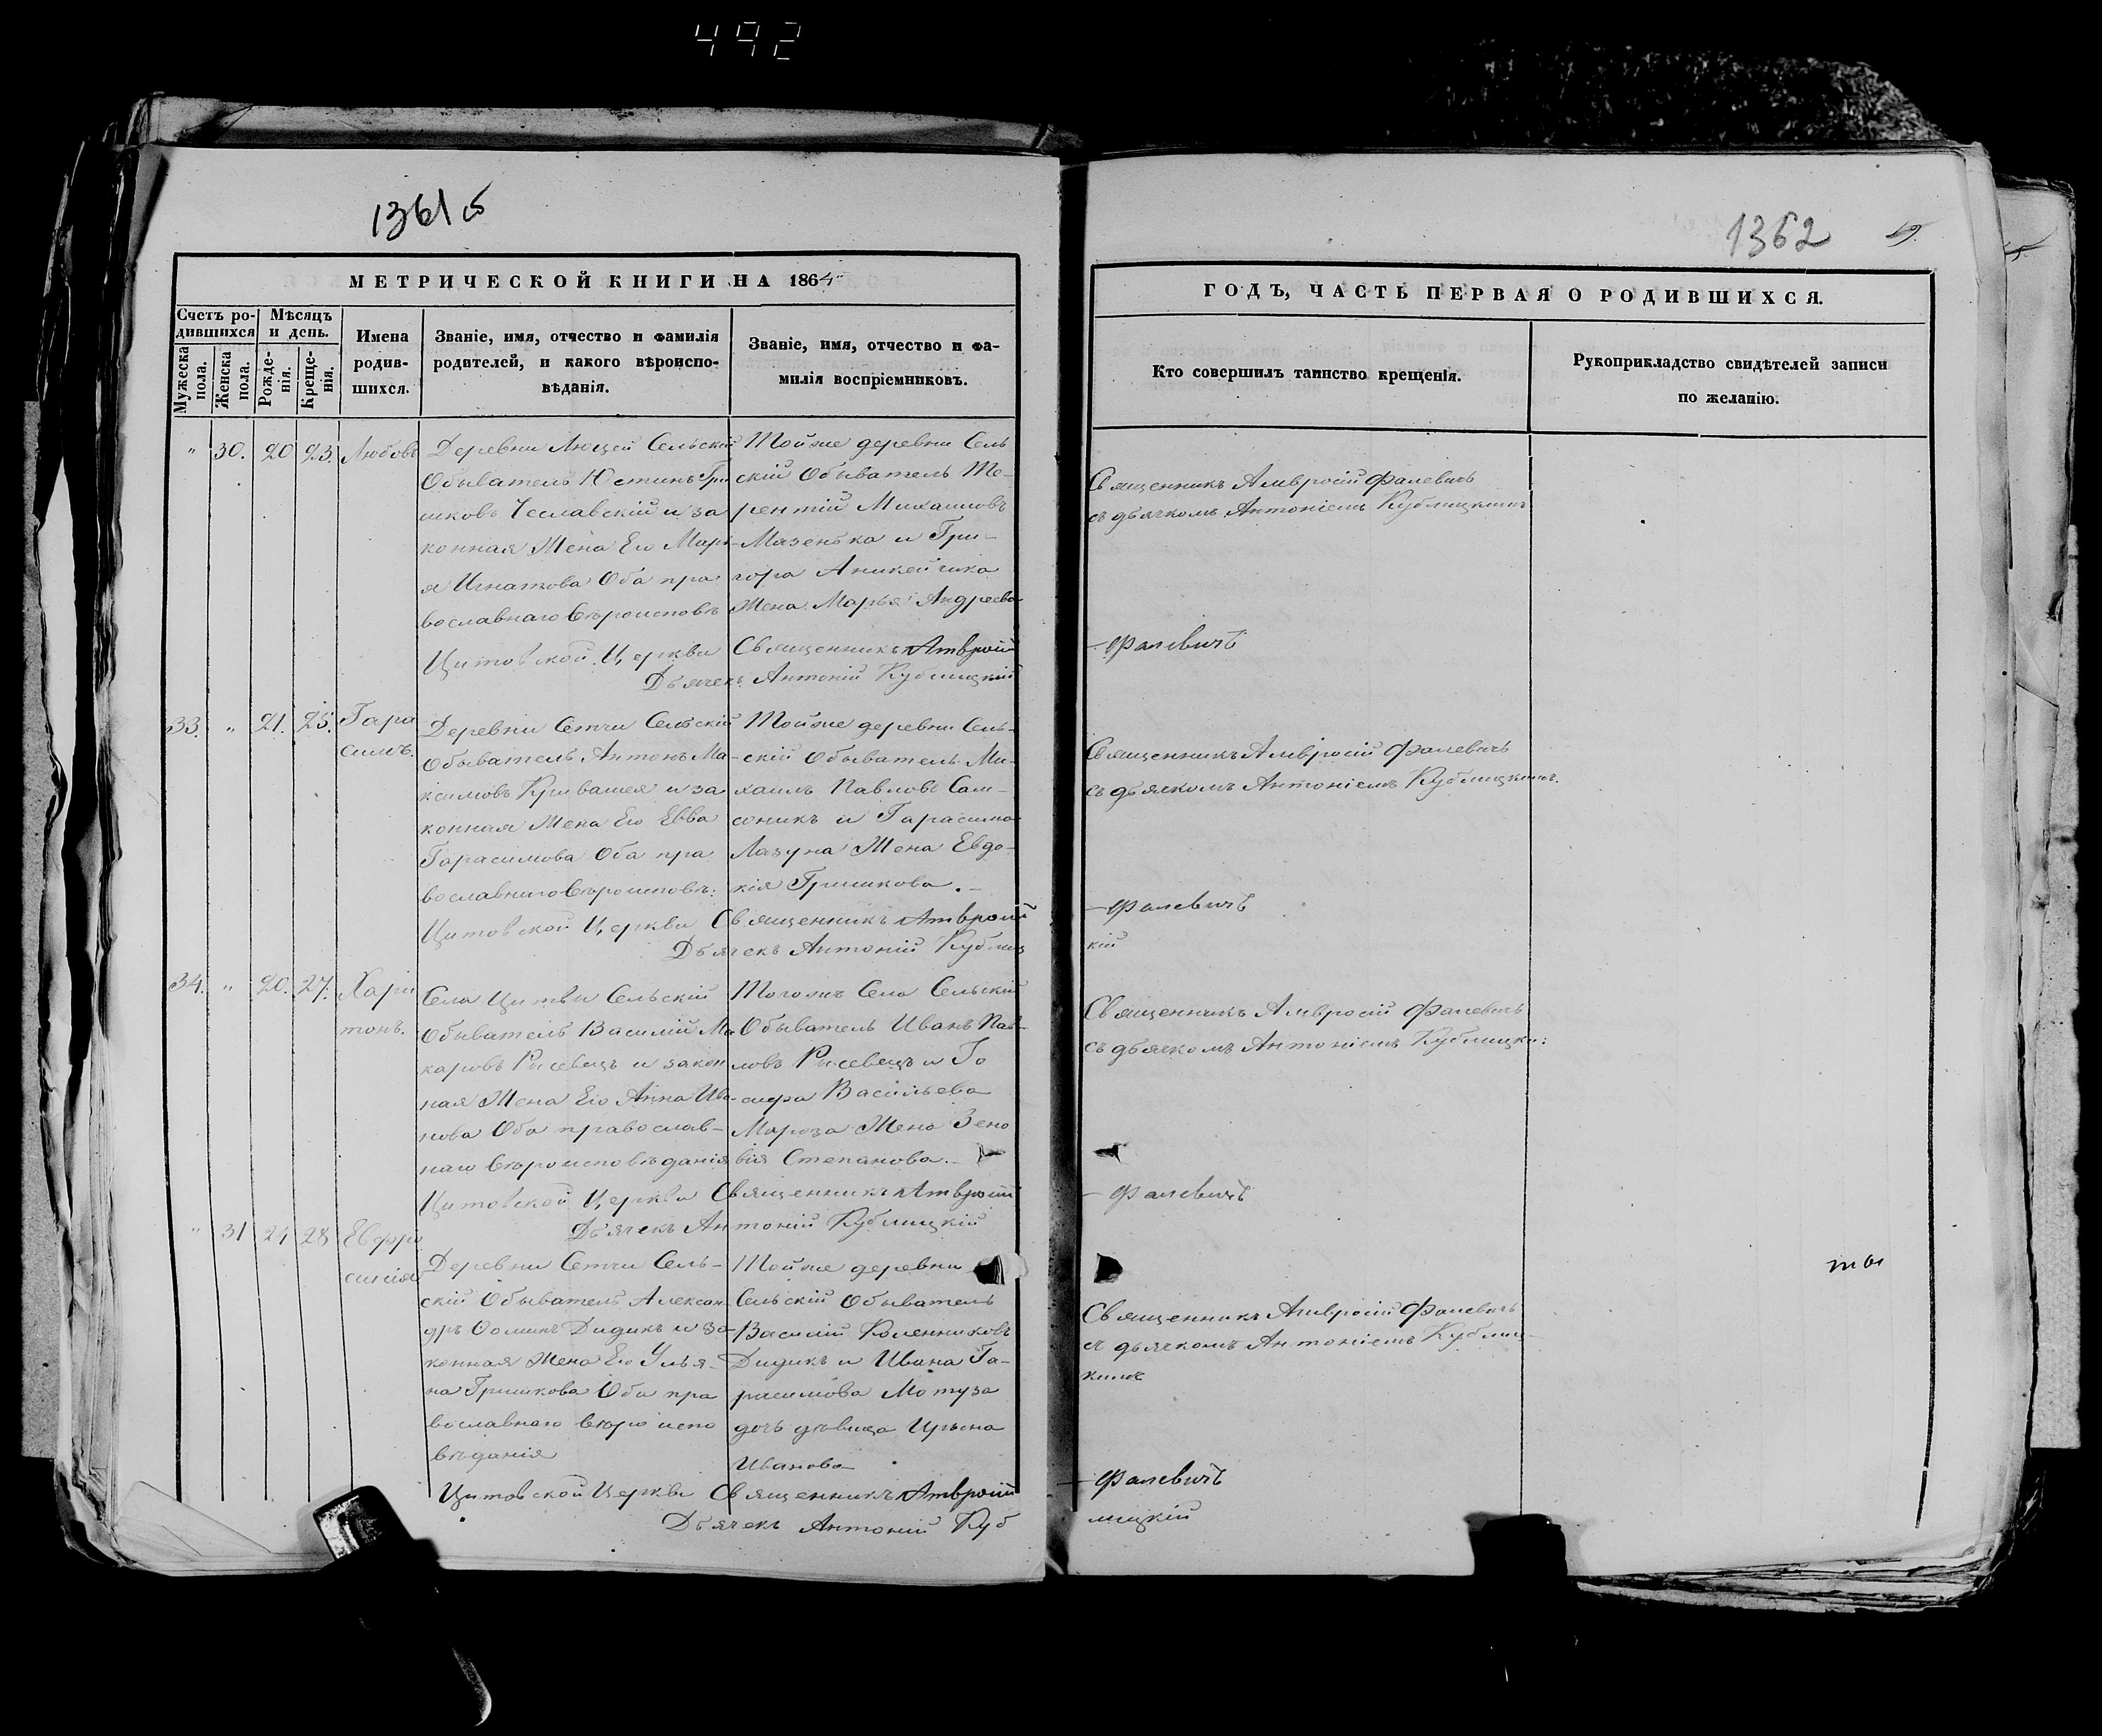 492
1361 б
МЕТРИЧЕСКОЙ КНИГИ НА 1864
Счетъ ро-
дившихся
Мѣсяцъ
и день.
Мужеска
пола.
Женска
пола.
Рожде-
нія.
Креще-
нія.
Имена
родив-
шихся.
Званіе, имя, отчество и фамилія
родителей, и какого вѣроиспо-
вѣданія.
Званіе, имя, отчество и фа-
милія воспріемниковъ.
" 30. 20 23. Любовь
Деревни Люцей Сельскій
Обыватель Юстинъ Гри
шковъ Чеславскій и за
конная Жена Его Марі-
я Игнатова Оба пра
вославнаго вѣроисповѣ
Тойже деревни Сель
скій Обыватель Те-
рентій Михаиловъ
Мазенька и Гри-
гора Аникейчика
Жена Марья Андреева
Цитовской Церкви Священникъ Амвросій
Дьячекъ Антоній Кублицкій
33. " 21. 25. Гара
симъ.
Деревни Сетчи Сельскій
Обыватель Антонъ Ма-
ксимовъ и за
конная Жена Его Евва
Гарасимова Оба пра
вославнаго вѣроисповѣ:
Тойже деревни Сель-
скій Обыватель Ми-
хаилъ Павловъ Сам-
соникъ и Гарасима
Лазуна Жена Евдо-
кія Гришкова.-
Цитовской Церкви Священникъ Амвросій
Дьячекъ Антоній Кублиц
34. " 20. 27. Хари
тонъ.
Села Цитвы Сельскій
Обыватель Василій Ма
каровъ Рысевецъ и закон
ная Жена Его Анна Ива-
нова Оба православ-
наго вѣроисповѣданія
Тогожъ Села Сельскій
Обыватель Иванъ Пав-
ловъ Рысевецъ и Іо
сифа Васильева
Мароза Жена Зено
вія Степанова.-
Цитовской Церкви Священникъ Амвросій
Дьячекъ Антоній Кублицкій
" 31 24 28 Евфро
синія
Деревни Сетчи Сель-
скій Обыватель Алексан
дръ Ѳоминъ Дидикъ и за-
конная Жена Его Улья-
на Гришкова Оба пра
вославнаго вѣроиспо
вѣданія
Тойже деревни
Сельскій Обыватель
Василій
Дидикъ и Ивана Га-
расимова Мотуза
дочь дѣвица Ирына
Иванова
Цитовской Церкви Священникъ Амвросій
Дьячекъ Антоній Куб
1362
ГОДЪ, ЧАСТЬ ПЕРВАЯ О РОДИВШИХСЯ.
Кто совершилъ таинство крещенія.
Рукоприкладство свидѣтелей записи
по желанію.
Священникъ Амвросій Фалевичъ
съ дьячкомъ Антоніемъ Кублицкимъ
Фалевичъ
Священникъ Амвросій Фалевичъ
съ дьячкомъ Антоніемъ Кублицкимъ.
Фалевичъ
кій
Священникъ Амвросій Фалевичъ
съ дьячкомъ Антоніемъ Кублицки:
Фалевичъ
Священникъ Амвросій Фалевичъ
съ дьячкомъ Антоніемъ Кублиц-
кимъ
Фалевичъ
лицкій